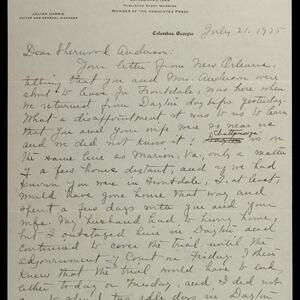 JULIAN HARRIS
EDITOR AND GENERAL MANAGER
PUBLISHED EVERY MORNING
MEMBER OF THE ASSOCIATED PRESS
Columbus, Georgia
July 21, 1925
Dear Sherwood Anderson:
Your letter from New Orleans,
that you and Mrs. Anderson were
about to leave for Troutdale, was here when
we returned from Dayton day before yesterday.
What a disappointment it was to us to learn
that you and your wife was so near us
and we did not know it! Chattanooga is on
the same line as Marion, Va., only a matter
of a few hours distant, and if we had
known you were in Troutdale, I, at least,
would have gone home that way and
spent a few days with you and your
wife. My husband had to hurry home,
but I outstayed him in Dayton and
continued to cover the trial until the
adjournment of Court on Friday. I then
knew that the trial would have to end
either today or Tuesday, and I did not